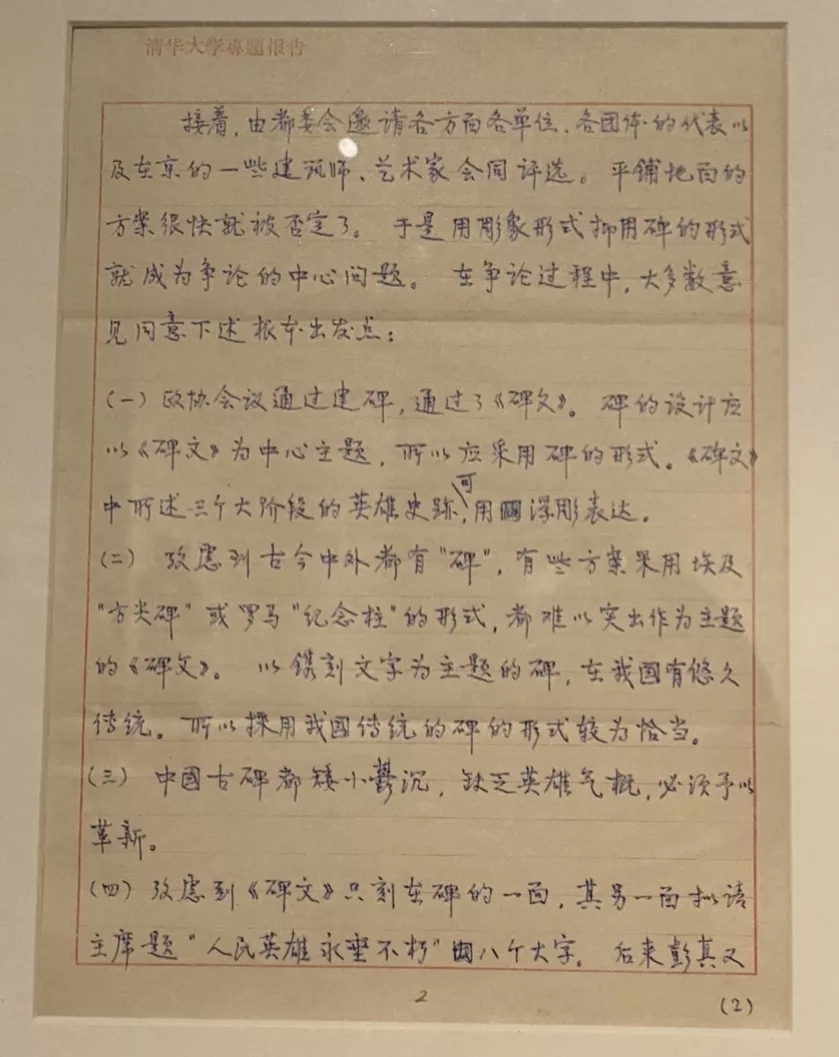 清华大学專題报告
接着，由都委会邀请各方面各单位、各团体的代表以
及在京的一些建筑师、艺术家会同评选。平铺地面的
方案很快就被否定了。于是用彫象形式抑用碑的形式
就成为争论的中心问题。在争论过程中，大多数意
见同意下述根本出发点：
(一) 政协会议通过建碑，通过了《碑文》。碑的设计应
以《碑文》为中心主题，所以应采用碑的形式。《碑文》
可
中所述三个大阶段的英雄史跡，用浮彫表达。
(二) 攷虑到古今中外都有"碑"，有些方案采用埃及
"方尖碑"或罗马"纪念柱"的形式，都难以突出作为主题
的《碑文》。以鐫刻文字为主题的碑，在我國有悠久
传统。所以採用我國传统的碑的形式较为恰当。
(三) 中國古碑都矮小鬱沉，缺乏英雄气概，必须予以
革新。
(四) 攷虑到《碑文》只刻在碑的一面，其另一面拟请
主席题"人民英雄永垂不朽"八个大字。后来彭真又
2
(2)